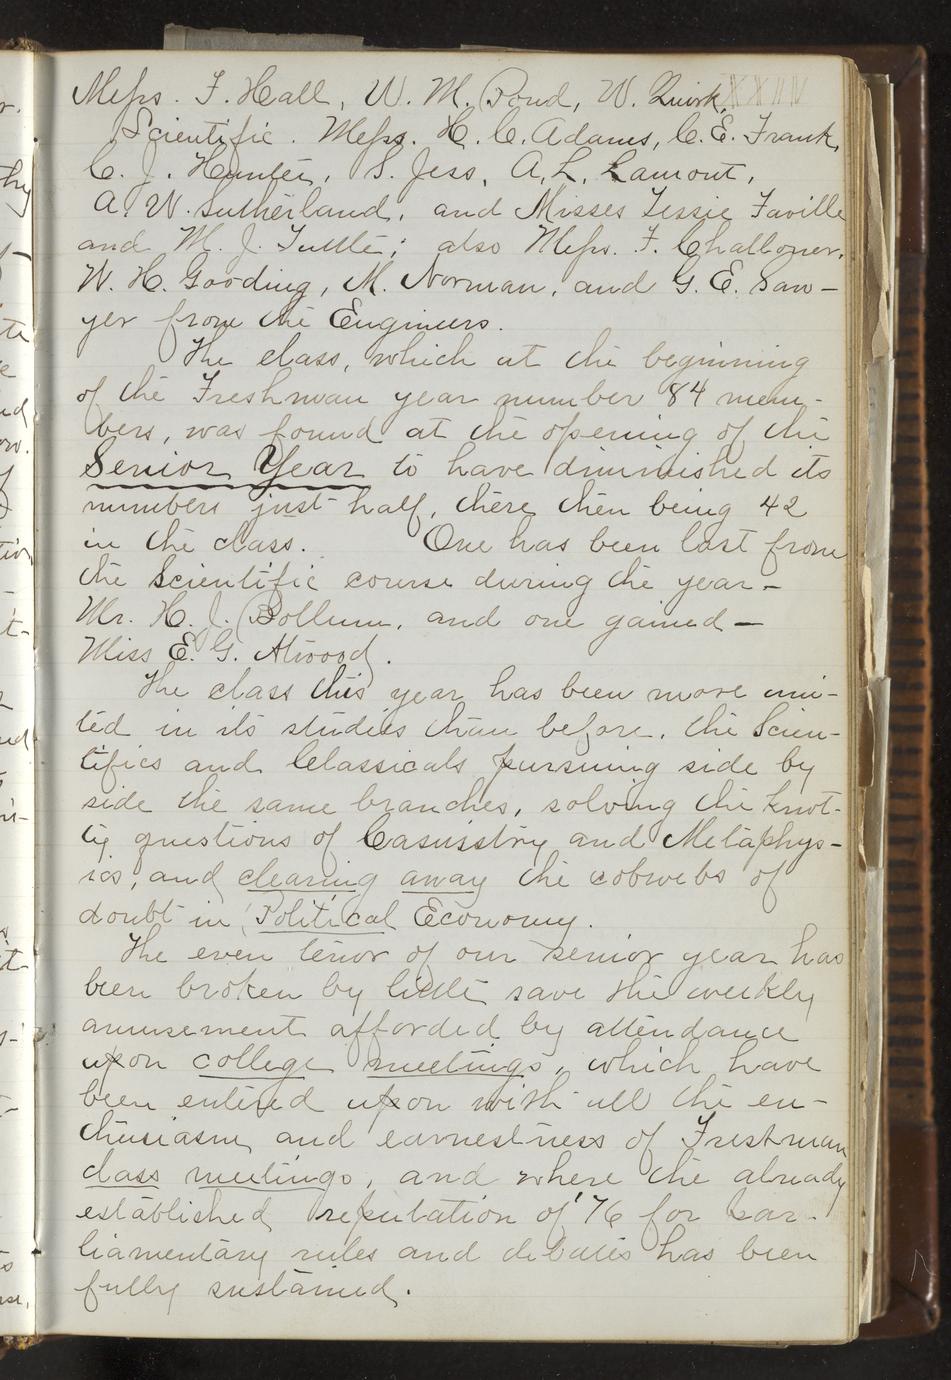 Messrs. F. Hall, W. M. Pond, W. Quirk.
Scientific. Messrs. H. C. Adams, C. E. Frank,
C. J. Hunter, S. Jess, A. L. Lamont,
A. W. Sutherland, and Misses Tessie Faville
and M. J. Tuttle; also Messrs. F. Challoner,
W. H. Gooding, M. Norman, and G. E. Saw-
yer from the Engineers.
The class, which at the beginning
of the Freshman year number 84 mem-
bers, was found at the opening of the
Senior Year to have diminished its
numbers just half, there then being 42
in the class. One has been lost from
the Scientific course during the year-
Mr. H. J. Bollum, and one gained-
Miss E. G. Atwood.
The class this year has been more uni-
ted in its studies than before, the Scien-
tifics and Classicals pursuing side by
side the same branches, solving the knot-
ty questions of Casuistry and Metaphys-
ics, and clearing away the cobwebs of
doubt in Political Economy.
The even tenor of our senior year has
been broken by little save the weekly
amusement afforded by attendance
upon college meetings, which have
been entered upon with all the en-
thusiasm and earnestness of Freshman
class meetings, and where the already
established reputation of '76 for par-
liamentary rules and debates has been
fully sustained.